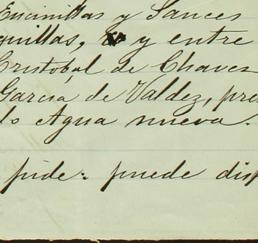 Encinillas y Sances
quillas, y entre
Cristobal de Chaves
Garcia de Valdez, pre
lo Agua nueva.
pide: puede disp